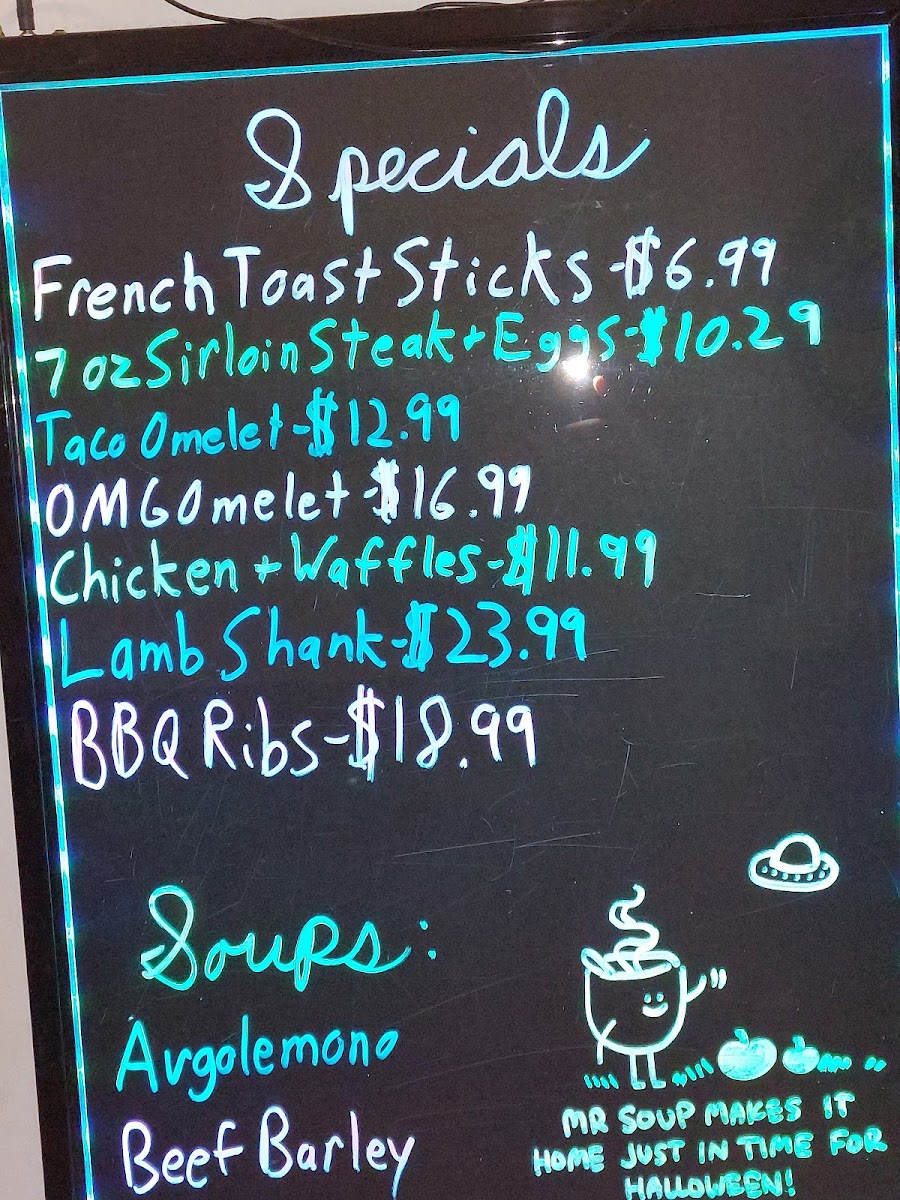 Specials
French Toast Sticks - $6.99
7 oz Sirloin Steak + Eggs - $10.29
Taco Omelet - $12.99
OMG Omelet - $16.99
Chicken + Waffles - $11.99
Lamb Shank - $23.99
BBQ Ribs - $18.99
Soups:
Avgolemono
Beef Barley
MR SOUP MAKES IT
HOME JUST IN TIME FOR
HALLOWEEN!